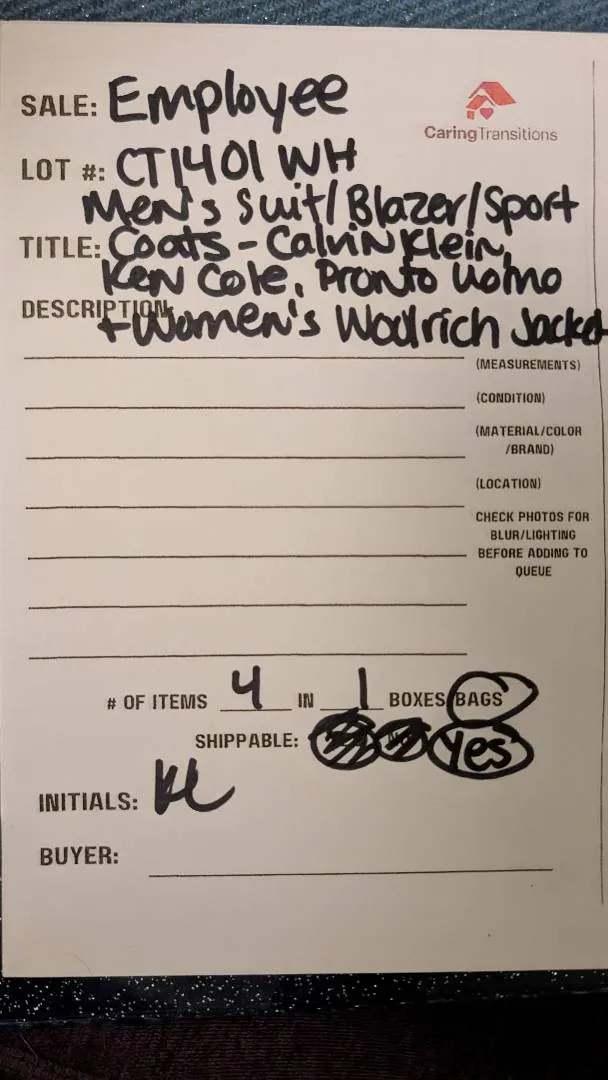 SALE: Employee
CaringTransitions
LOT #: CT1401 WH
Men's Suit/Blazer/Sport
TITLE: Coats - Calvin Klein,
Ken Cole, Pronto Uomo
DESCRIPTION
+ Women's Woolrich Jacket
(MEASUREMENTS)
(CONDITION)
(MATERIAL/COLOR
/BRAND)
(LOCATION)
CHECK PHOTOS FOR
BLUR/LIGHTING
BEFORE ADDING TO
QUEUE
# OF ITEMS 4 IN 1 BOXES/BAGS
SHIPPABLE: Yes
INITIALS: KL
BUYER: